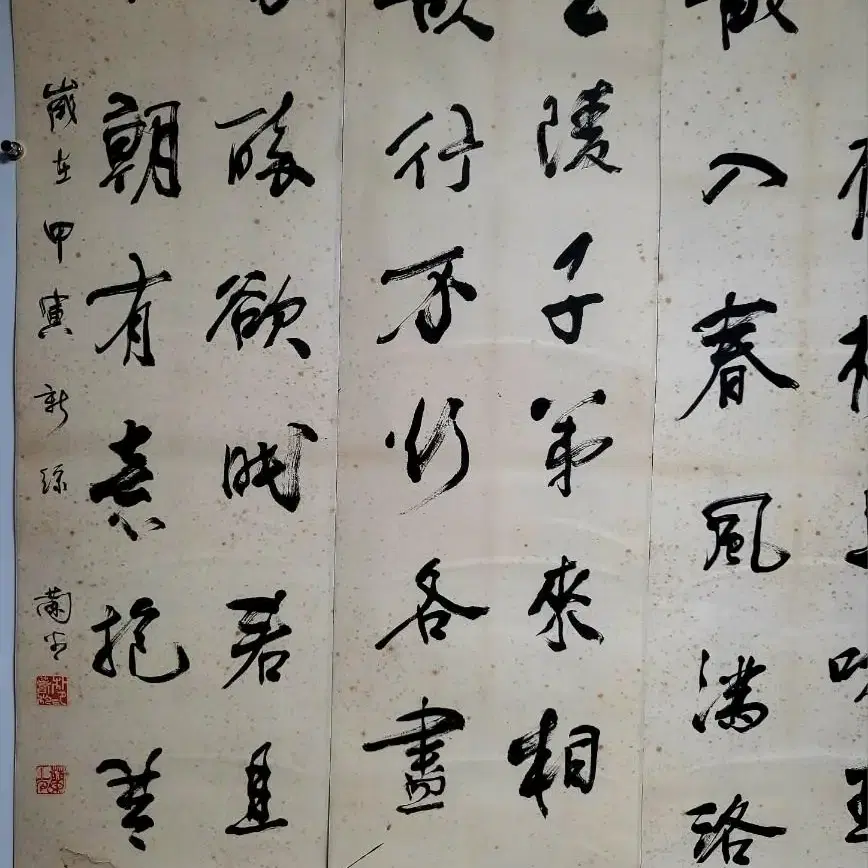 散入春風滿洛
陵子弟來相
欲行不行各盡
醉欲眠君且
朝有意抱琴
歲在甲寅新綠 蘭